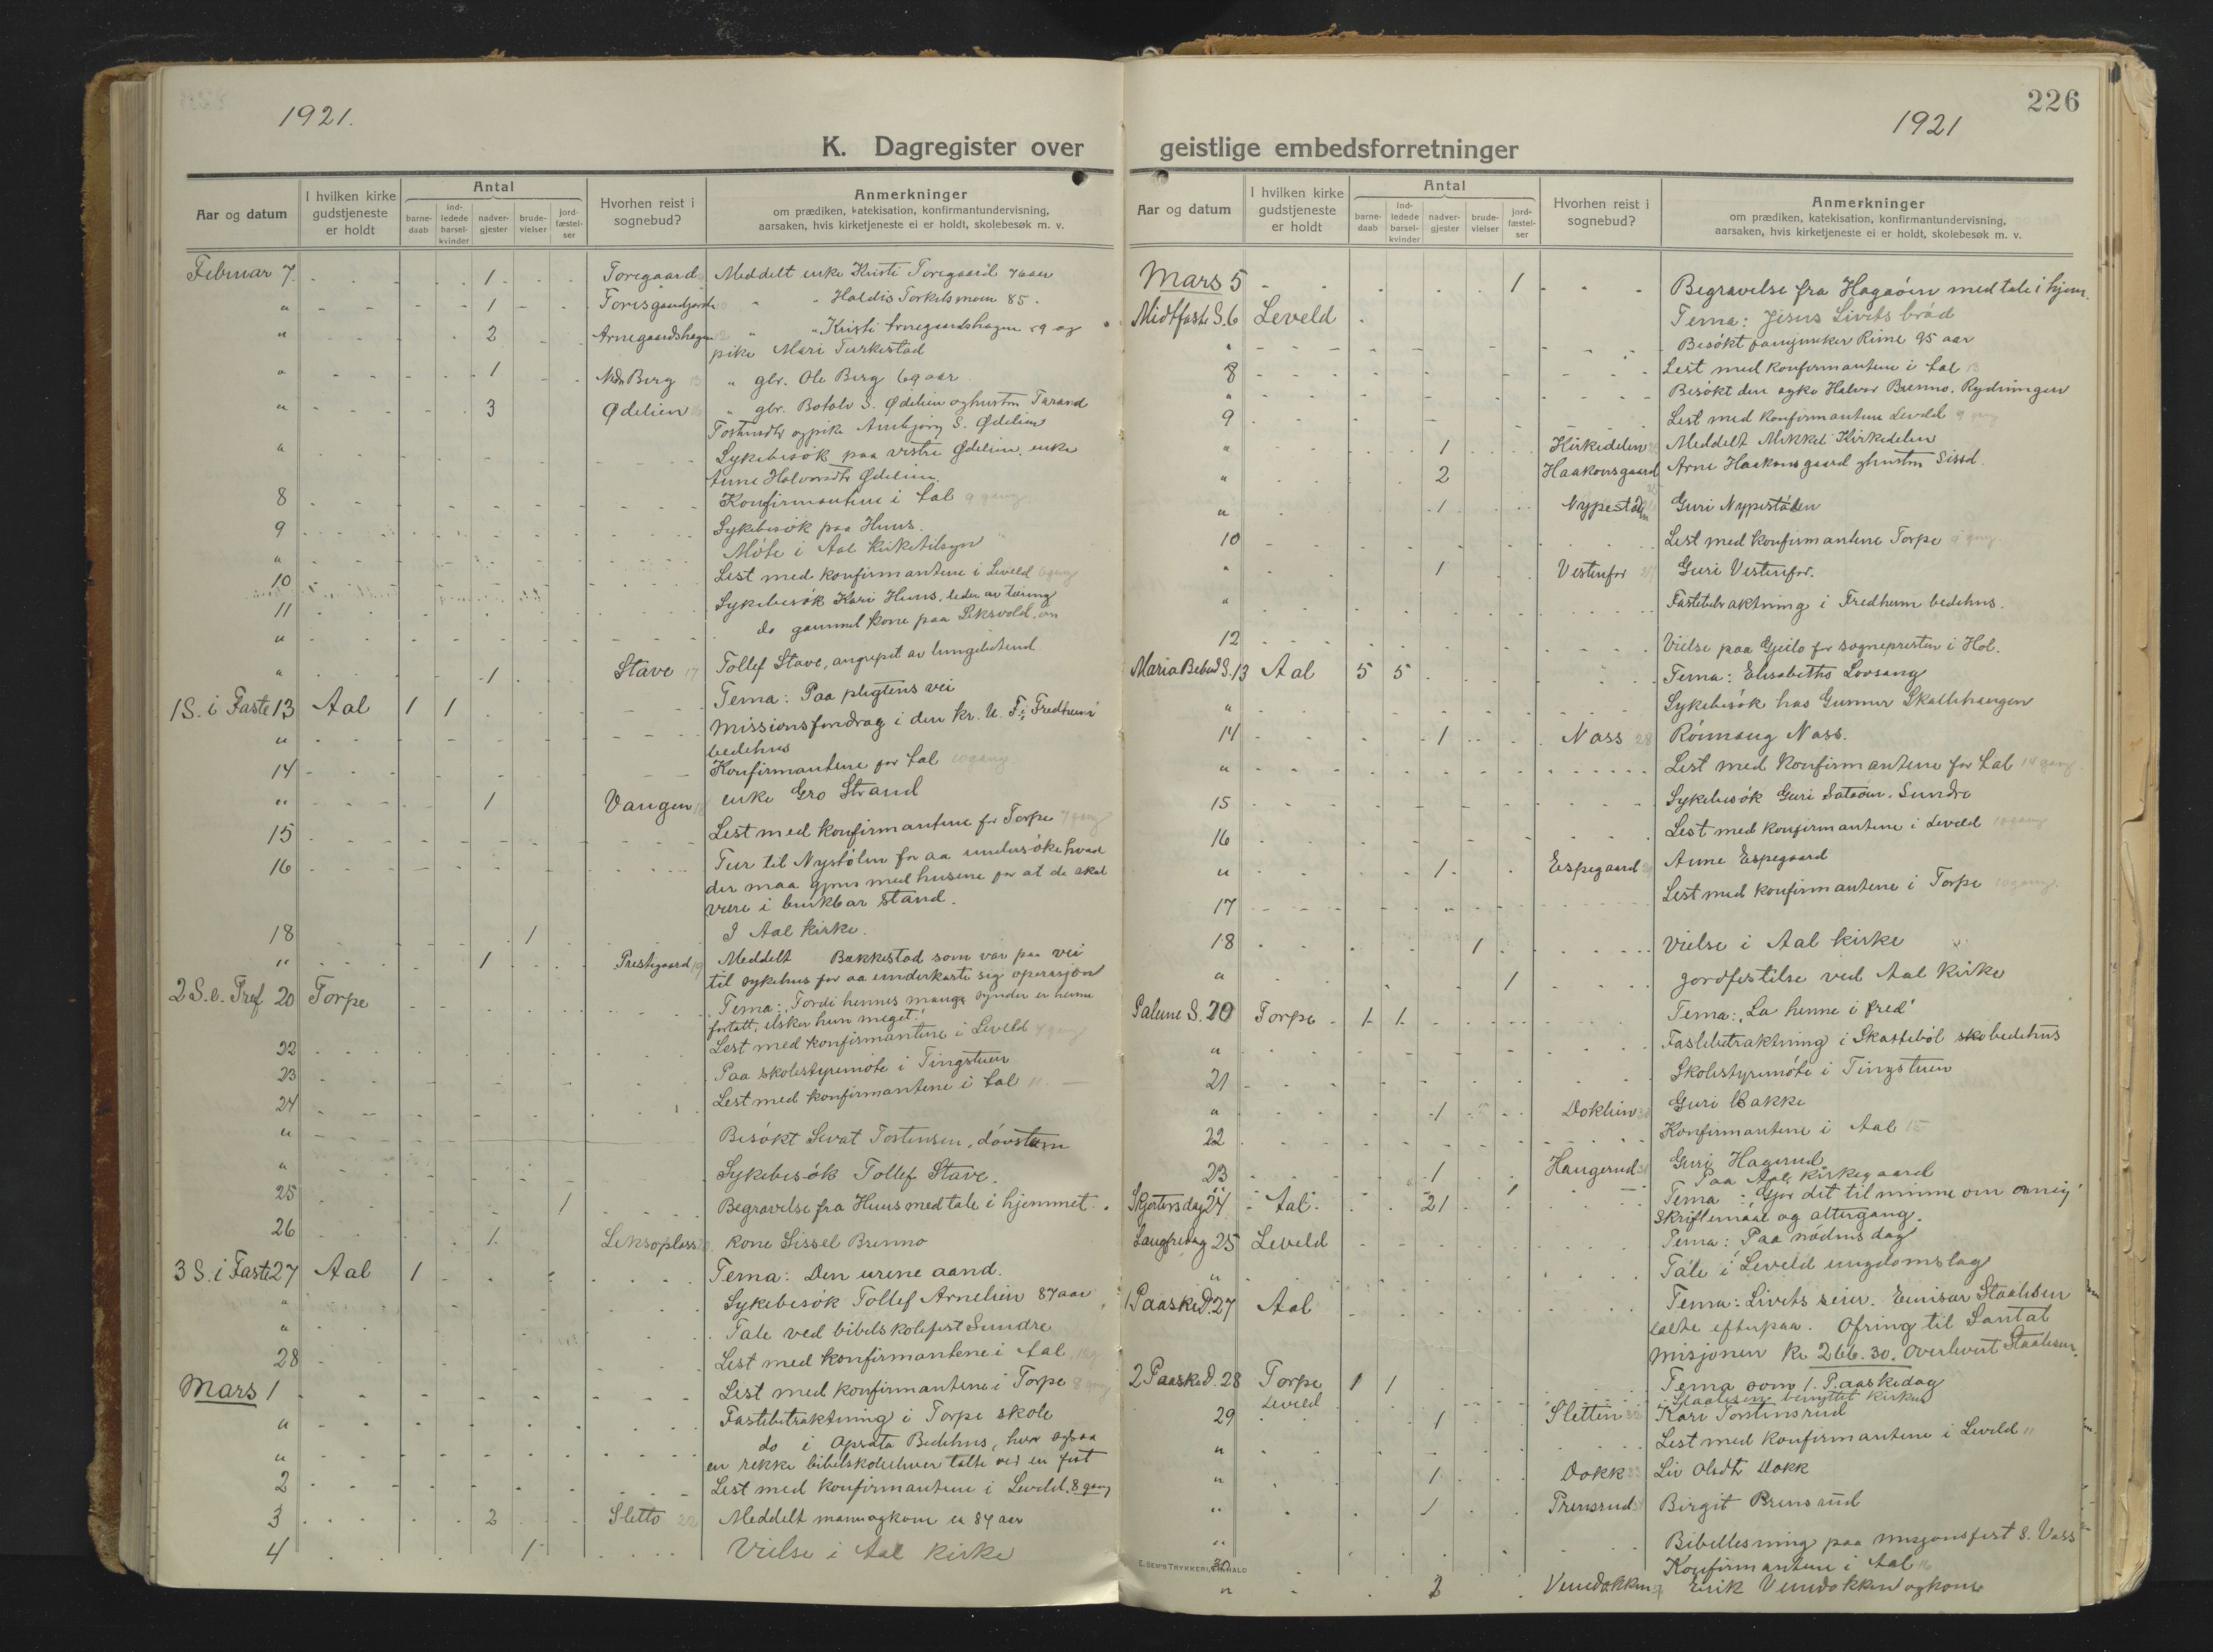 226
1921.
1921
K. Dagregister over geistlige embedsforretninger
Aar og datum
I hvilken kirke gudstjeneste er holdt
Antal
barne-daab
ind-ledede barsel-kvinder
nadver-gjester
brude-vielser
jord-fæstel-ser
Hvorhen reist i sognebud?
Anmerkninger
om prædiken, katekisation, konfirmantundervisning,
aarsaken, hvis kirketjeneste ei er holdt, skolebesøk m. v.
Februar 7 1 Toregaard Meddelt enke Kristi Toregaard
" 1 Haldis Torkelsmoen 85
" 2 Arnegaardshagen " " Kristi Arnegaardshagen 59 og
pike Mari Turkestad
" 1 Ndr Berg " gbr. Ole Berg 69 aar
" 3 Ødelien " gbr. Botolv S. Ødelien og hustru
og pike Ambjørg S. Ødelien
" Sykebesøk paa vestre Ødelien, enke
Anne Halvorsdtr Ødelien.
8 Konfirmantene i Aal 9 gang
9 Sykebesøk paa Huus.
" Møte i Aal kirketilsyn
10 Lest med konfirmantene i Leveld
11 Sykebesøk Kari Huus, lider av tæring
" do gammel kone paa Leksvold
" 1 Stave 17 Tollef Stave, angrepet av
1 S. i Faste 13 Aal 1 1 Tema: Paa pligtens vei
" Missionsforedrag i den kr. U. F. i Fredheim
bedehus
14 Konfirmantene for Aal 10 gang
" 1 Vangen enke Gro Strand
15 Lest med konfirmantene for Torpe 7 gang
16 Tur til Nystølen for aa undersøke hvad
der maa gjøres med husene for at de skal
være i brukbar stand.
18 1 I Aal kirke.
" 1 Prestegaard 19 Meddelt Bakkestad som var paa vei
til sykehus for aa underkaste sig operasjon
2 S. i Fast 20 Torpe Tema: "Fordi hennes mange synder er henne
forlatt, elsker hun meget."
22 Lest med konfirmantene i Leveld
23 Paa skolestyremøte i Tingstuen
24 Lest med konfirmantene i Aal 11
" Besøkt Sevat Tostensen, døvstum
" Sykebesøk Tollef Stave.
25 1 Begravelse fra Huus med tale i hjemmet.
26 1 Leksoplass kone Sissel Brenno
3 S. i Faste 27 Aal 1 Tema: Den urene aand.
" Sykebesøk Tollef Arnelien 87 aar
" Tale ved bibelskolefest Sundre
28 Lest med konfirmantene i Aal
Mars 1 Lest med konfirmantene i Torpe 8 gang
" Fastebetraktning i Torpe skole
" do i Opsata Bedehus, hvor ogsaa
en rekke bibelskoleelever talte ved en fest
2 Lest med konfirmantene i Leveld. 8 gang
3 2 Sletto 22 Meddelt mann og kone ca 84 aar
4 1 Vielse i Aal kirke
Aar og datum
I hvilken kirke gudstjeneste er holdt
Antal
barne-daab
ind-ledede barsel-kvinder
nadver-gjester
brude-vielser
jord-fæstel-ser
Hvorhen reist i sognebud?
Anmerkninger
om prædiken, katekisation, konfirmantundervisning,
aarsaken, hvis kirketjeneste ei er holdt, skolebesøk m. v.
Mars 5 1 Begravelse fra Hagaøen med tale i hjem.
Midtfaste S. 6 Leveld Tema: Jesus Livets brød
" Besøkt Rime 95 aar
8 Lest med konfirmantene i Aal 13
" Besøkt den syke Halvor Brenno, Rydningen
9 Lest med konfirmantene Leveld 9 gang
" 1 Kirkedelen Meddelt Mikkel Kirkedelen
" 2 Haakonsgaard Arne Haakonsgaard og hustru Sissel.
" 1 Nypestølen Guri Nypestølen
10 Lest med konfirmantene Torpe 9 gang
" 1 Vestenfor Guri Vestenfor.
" Fastebetraktning i Fredheim bedehus.
12 Vielse paa Geilo for sognepresten i Hol.
Maria Bebud S. 13 Aal 5 5 Tema: Elisabeths Lovsang
" Sykebesøk hos Gunnar Skallehaugen
14 1 Nass 28 Rönnaug Nass.
" Lest med konfirmantene for Aal 14 gang
15 Sykebesøk Guri Sataøen. Sundre
16 Lest med konfirmantene i Leveld 10 gang
" 1 Espegaard Anne Espegaard
17 Lest med konfirmantene i Torpe 10 gang.
18 1 Vielse i Aal kirke
" 1 Jordfestelse ved Aal kirke
Palme S. 20 Torpe 1 1 Tema: "La henne i fred"
" Fastebetraktning i Skattebøl bedehus
21 Skolestyremøte i Tingstuen
" 1 Doklien Guri Bakke
22 Konfirmantene i Aal 15
23 1 Haugerud 31 Guri Hagerud
" 1 Paa Aal kirkegaard
Skjærtorsdag 24 Aal 21 Tema: Gjør det til minne om mig
Skriftemaal og altergang.
Langfredag 25 Leveld Tema: Paa nødens dag
" Tale i Leveld ungdomslag
1 Paaske D. 27 Aal Tema: Livets seier. Emisær Staalesen
talte efterpaa. Ofring til Santal
misjonen Kr. 266.30. overlevert Staalesen.
2 Paaske D. 28 Torpe 1 1 Tema som 1. Paaskedag
Leveld Staalesen benyttet kirken
29 1 Sletten 32 Kari Torstensrud
" Lest med konfirmantene i Leveld 11
" 1 Dokk 33 Liv Olsdtr Dokk
" 1 Prensrud Birgit Prensrud
" Bibellesning paa misjonsfest S. Vass
30 Konfirmantene i Aal 16
" 2 Vennedokken Erik Vennedokken og kone
E. SEM'S TRYKKERI, FR.HALD